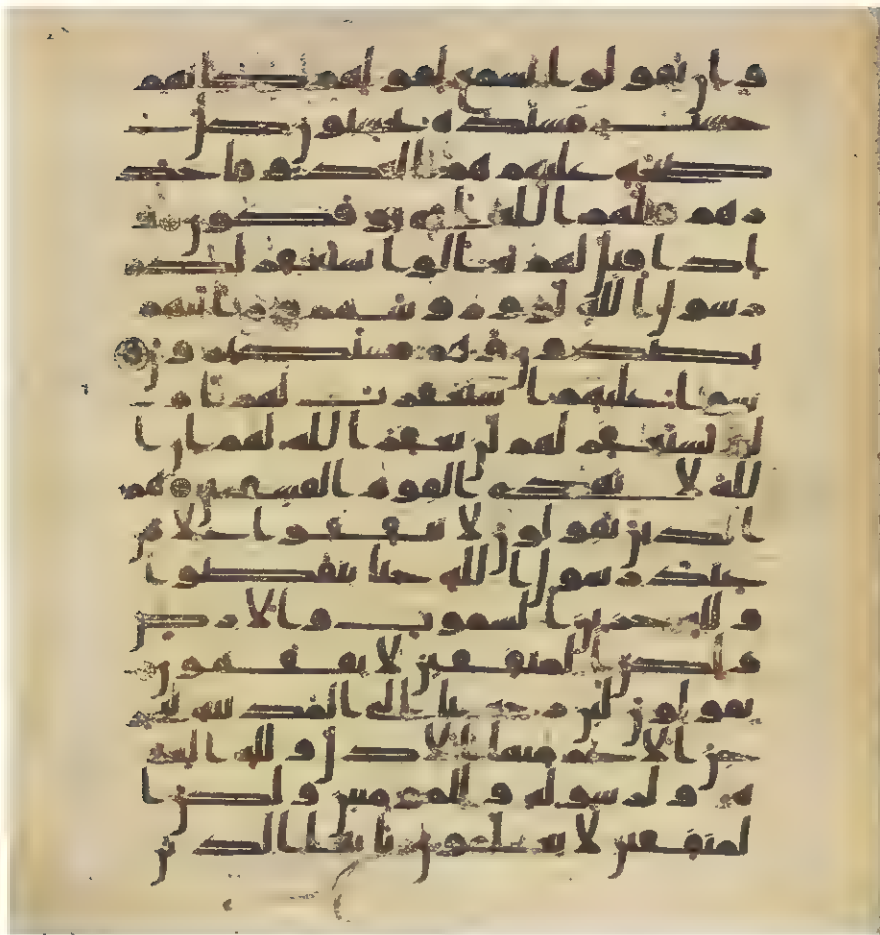 و ان يقولوا تسمع لقولهم كانهم
خشب مسندة يحسبون كل
صيحة عليهم هم العدو فاحذ
رهم قتلهم الله انى يوفكون و
اذا قيل لهم تعالوا يستغفر لكم
رسول الله لووا روسهم ورايتهم
يصدون وهم مستكبرون
سوا عليهم استغفرت لهم ام
لم تستغفر لهم لن يغفر الله لهم ان ا
لله لا يهدي القوم الفسقين هم
الذين يقولون لا تنفقوا على من
عند رسول الله حتى ينفضوا
و لله خزاين السموت و الارض
و لكن المنفقين لا يفقهون
يقولون لين رجعنا الى المدينة ليخ
رجن الاعز منها الاذل و لله العز
ة و لرسوله و للمومنين و لكن ا
لمنفقين لا يعلمون يايها الذين